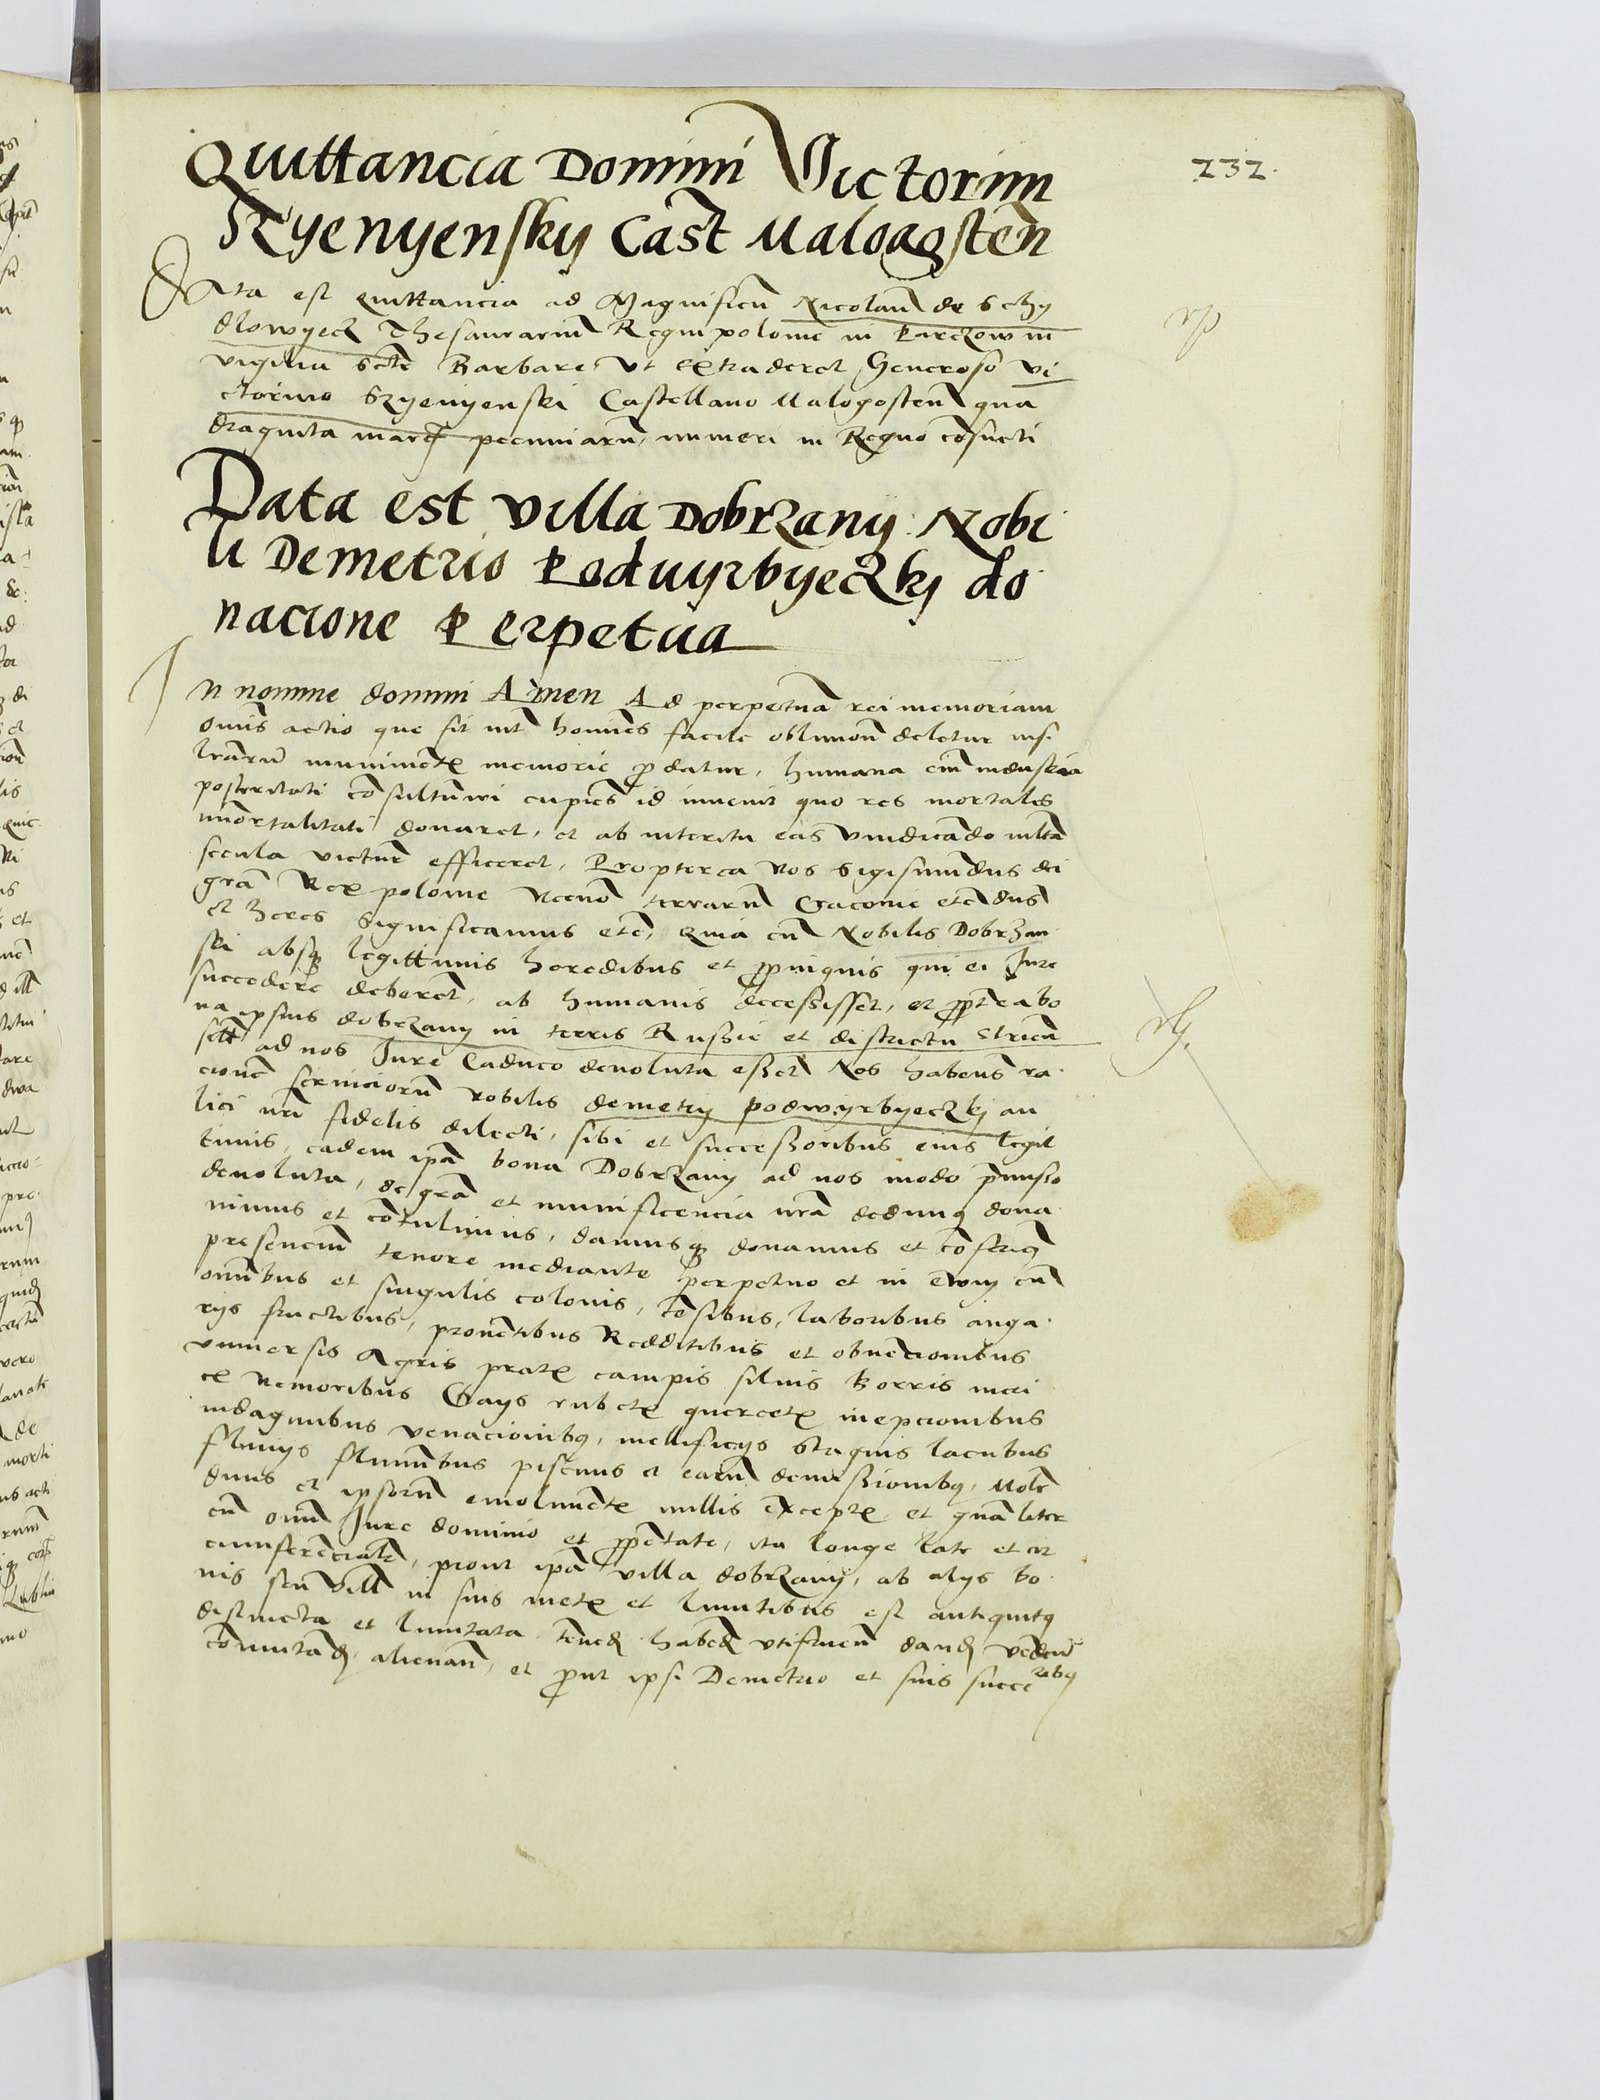 232.
Quittancia Domini Victorini
Szyenyensky Cast Malogosten
Data est quittancia ad Magnificu Nicolau de Schy
dlowyecz Thesaurariu Regni polonie in Parczow in
vigilia Scte Barbare Vt extraderet Generoso Vi
ctorino Szyenyenski Castellano Malogosten qua
draginta marc pecuniaru numeri in Regno cosueti
Data est villa Dobrzany Nobi
li Demetrio Podvyrbyeczky do
nacione Perpetua
In nomine domini Amen Ad perpetua rei memoriam
Omis actio que sit int homies facile oblivion deletur nisi
lraru munimet memorie pdatur, humana em industria
posteritati cosultu iri cupies id invenit quo res mortales
imortalitati donaret, et ab interitu eas vindicado mlta
secula victur efficeret, Propterea Nos Sigismundus dei
gra Rex polonie Necno terraru Cracovie etc dns
et heres Significamus etc, Quia cu Nobilis Dobrzan
ski absq legittimis heredibus et ppinquis qui ei Jure
succedere deberet, ab humanis decessisset, et pptea bo
na ipsius dobrzany in terris Russie et districtu Strien
sitt ad nos Jure Caduco devoluta essent Nos habens ra
cione serviciorum Nobilis demetry podwyrbyeczky au
lici nri fidelis dilecti, sibi et successoribus eius legit
timis, eadem ipa bona Dobrzany ad nos modo pmisso
devoluta, de gra et munificencia nra dedimq dona
vimus et cotulimus, damusq donamus et coferiq
presenciu tenore mediante perpetuo et in ewm cu
omibus et singulis colonis, cesibus, laboribus anga
rys fructibus, provetibus Redditibus et obvecionibus
vniversis Agris prat campis silvis Borris meri
c Nemoribus Gays rubet quercet inepcionibus
indaginibus venacionibq, mellificys Stagnis lacubus
fluvys fluminibus piscinis et earu demissionibq, Mole
dinis et ipsoru emolimet nullis except et qualiter
cu omi Jure dominio et ppetate, ita longe late et cir
cumferecialr, prout ipa villa dobrzany, ab alys bo
nis seu vill in suis met et limitibus est antiquitq
distincta et limitata tened habed vtifruen dand vedeu
comutad, alienan, et prout ipsi Demetrio et suis succe
ribq